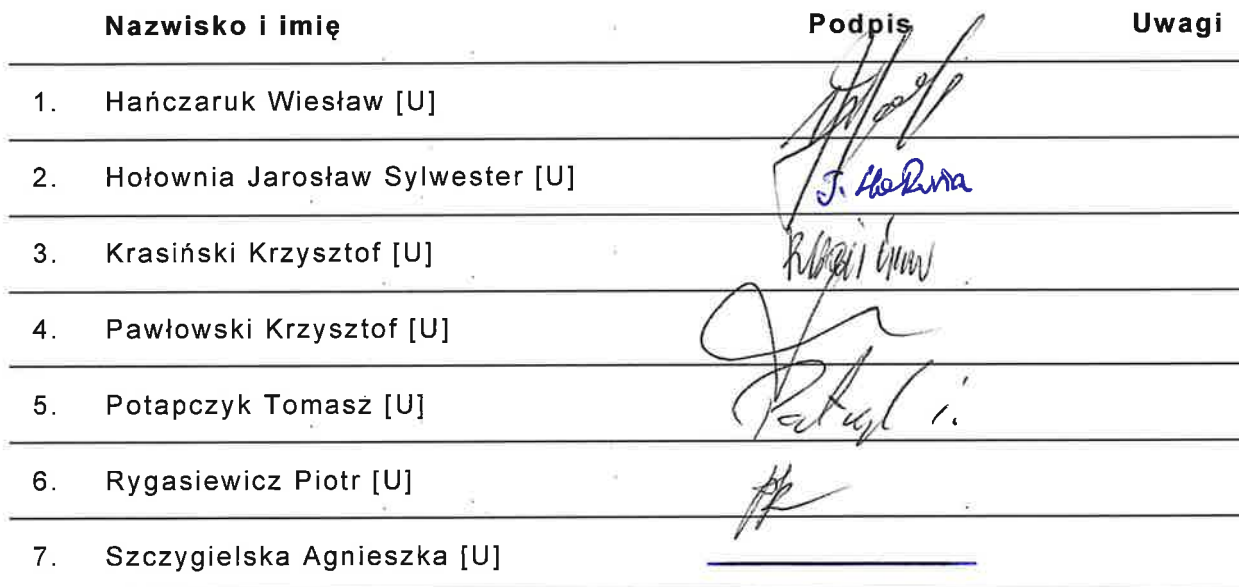 Nazwisko i imię Podpis Uwagi
1. Hańczaruk Wiesław [U]
2. Hołownia Jarosław Sylwester [U] J. Hołownia
3. Krasiński Krzysztof [U]
4. Pawłowski Krzysztof [U]
5. Potapczyk Tomasz [U]
6. Rygasiewicz Piotr [U]
7. Szczygielska Agnieszka [U]